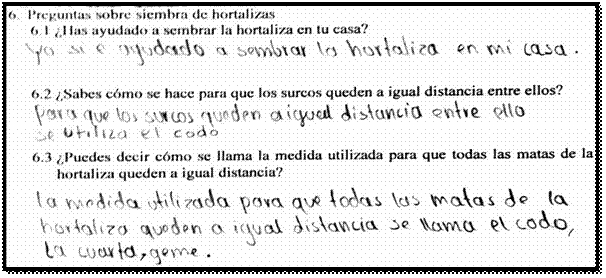 6. Preguntas sobre siembra de hortalizas
6.1 ¿Has ayudado a sembrar la hortaliza en tu casa?
Yo si e ayudado a sembrar la hortaliza en mi casa.
6.2 ¿Sabes cómo se hace para que los surcos queden a igual distancia entre ellos?
Para que los surcos queden a igual distancia entre ello
se utiliza el codo
6.3 ¿Puedes decir cómo se llama la medida utilizada para que todas las matas de la
hortaliza queden a igual distancia?
la medida utilizada para que todas las matas de la
hortaliza queden a igual distancia se llama el codo,
la cuarta, geme.